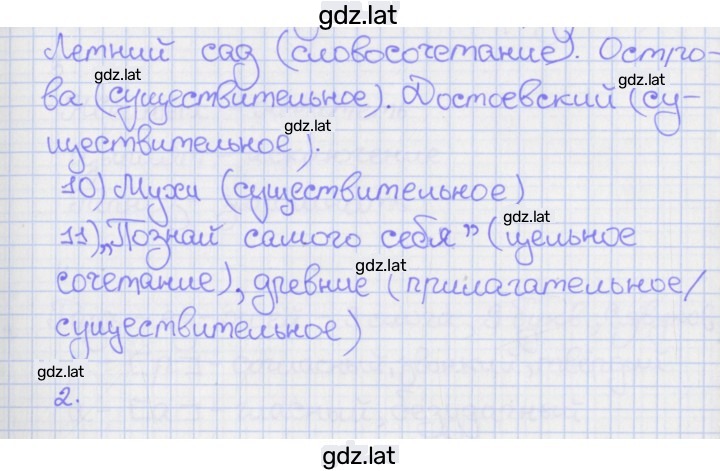 gdz.lat
Летний сад (словосочетание). Остро-
gdz.lat
gdz.lat
ва (существительное). Достоевский (су-
gdz.lat
ществительное).
10) Мухи (существительное)
gdz.lat
11) „Познай самого себя” (цельное
gdz.lat
сочетание), древние (прилагательное/
существительное)
gdz.lat
2.
gdz.lat